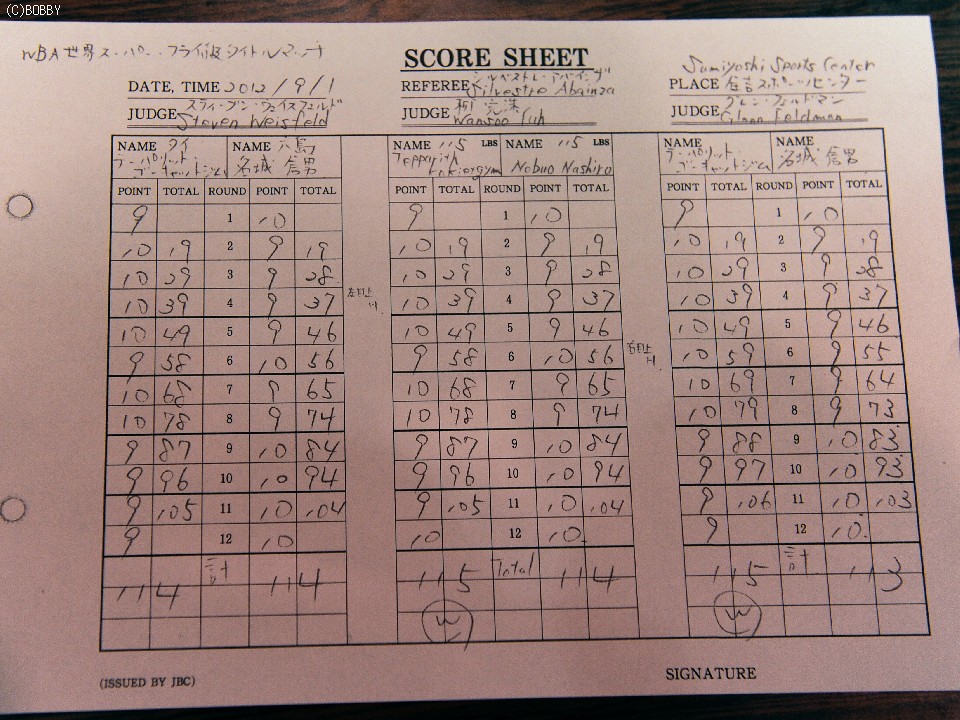 (C)BOBBY
WBA世界スーパー・フライ級タイトルマッチ
SCORE SHEET
Sumiyoshi Sports Center
DATE, TIME 2012/9/1
REFEREE Silvestre Abainza
PLACE 住吉スポーツセンター
スティーブン・ウェイスフェルド
JUDGE Steven Weisfeld
JUDGE Wansoo Yuh
グレン・フェルドマン
JUDGE Glenn Feldman
NAME タイ NAME 六島 NAME 115 LBS NAME 115 LBS NAME NAME
名城 信男 Tepparith Kokietgym Nobuo Nashiro 名城 信男
POINT TOTAL ROUND POINT TOTAL POINT TOTAL ROUND POINT TOTAL POINT TOTAL ROUND POINT TOTAL
9 1 10 9 1 10 9 1 10
10 19 2 9 19 10 19 2 9 19 10 19 2 9 19
10 29 3 9 28 10 29 3 9 28 10 29 3 9 28
10 39 4 9 37 10 39 4 9 37 10 39 4 9 37
10 49 5 9 46 10 49 5 9 46 10 49 5 9 46
9 58 6 10 56 9 58 6 10 56 10 59 6 9 55
10 68 7 9 65 10 68 7 9 65 10 69 7 9 64
10 78 8 9 74 10 78 8 9 74 10 79 8 9 73
9 87 9 10 84 9 87 9 10 84 9 88 9 10 83
9 96 10 10 94 9 96 10 10 94 9 97 10 10 93
9 105 11 10 104 9 105 11 10 104 9 106 11 10 103
9 12 10 10 12 10 9 12 10
114 計 114 115 Total 114 115 計 113
W W
(ISSUED BY JBC)
SIGNATURE